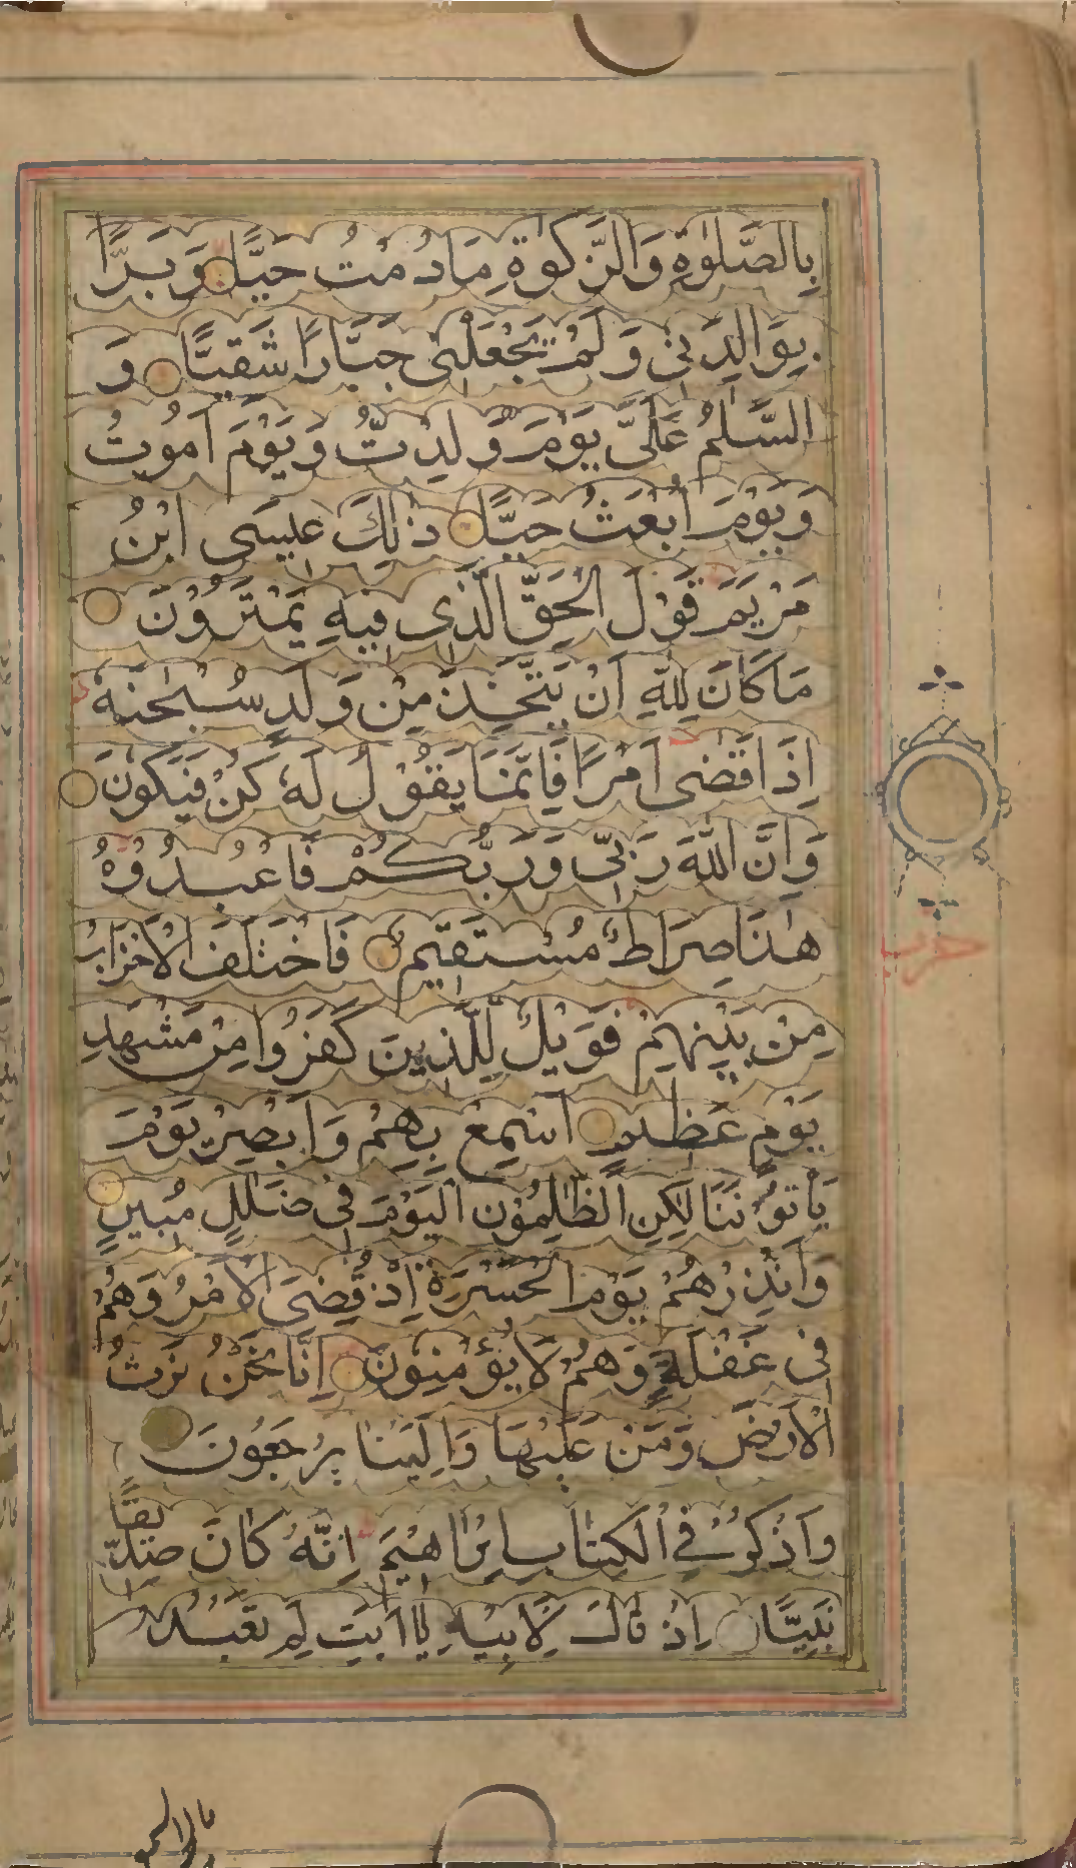 بِالصَّلٰوةِ وَالزَّكٰوةِ مَادُمْتُ حَيًّا وَبَرًّا
بِوَالِدَتِى وَلَمْ يَجْعَلْنِى جَبَّارًا شَقِيًّا وَ
السَّلٰمُ عَلَىَّ يَوْمَ وُلِدْتُّ وَيَوْمَ اَمُوتُ
وَيَوْمَ اُبْعَثُ حَيًّا ذٰلِكَ عِيسَى ابْنُ
مَرْيَمَ قَوْلَ الْحَقِّ الَّذِى فِيهِ يَمْتَرُوْنَ
مَا كَانَ لِلّٰهِ اَنْ يَتَّخِذَ مِنْ وَلَدٍ سُبْحٰنَهٗ
اِذَا قَضٰى اَمْرًا فَاِنَّمَا يَقُوْلُ لَهٗ كُنْ فَيَكُوْنَ
وَاِنَّ اللّٰهَ رَبِّى وَرَبُّكُمْ فَاعْبُدُوْهُ
هٰذَا صِرَاطٌ مُسْتَقِيمٌ فَاخْتَلَفَ الْاَحْزَابُ
مِنْ بَيْنِهِمْ فَوَيْلٌ لِلَّذِينَ كَفَرُوا مِنْ مَشْهَدِ
يَوْمٍ عَظِيمٍ اَسْمِعْ بِهِمْ وَاَبْصِرْ يَوْمَ
يَاْتُوْنَنَا لٰكِنِ الظّٰلِمُوْنَ الْيَوْمَ فِى ضَلٰلٍ مُبِينٍ
وَاَنْذِرْهُمْ يَوْمَ الْحَسْرَةِ اِذْ قُضِىَ الْاَمْرُ وَهُمْ
فِى غَفْلَةٍ وَهُمْ لَا يُؤْمِنُوْنَ اِنَّا نَحْنُ نَرِثُ
الْاَرْضَ وَمَنْ عَلَيْهَا وَاِلَيْنَا يُرْجَعُوْنَ
وَاذْكُرْ فِى الْكِتَابِ اِبْرَاهِيْمَ اِنَّهٗ كَانَ صِدِّيْقًا
نَبِيًّا اِذْ قَالَ لِاَبِيْهِ يَا اَبَتِ لِمَ تَعْبُدُ
حزب